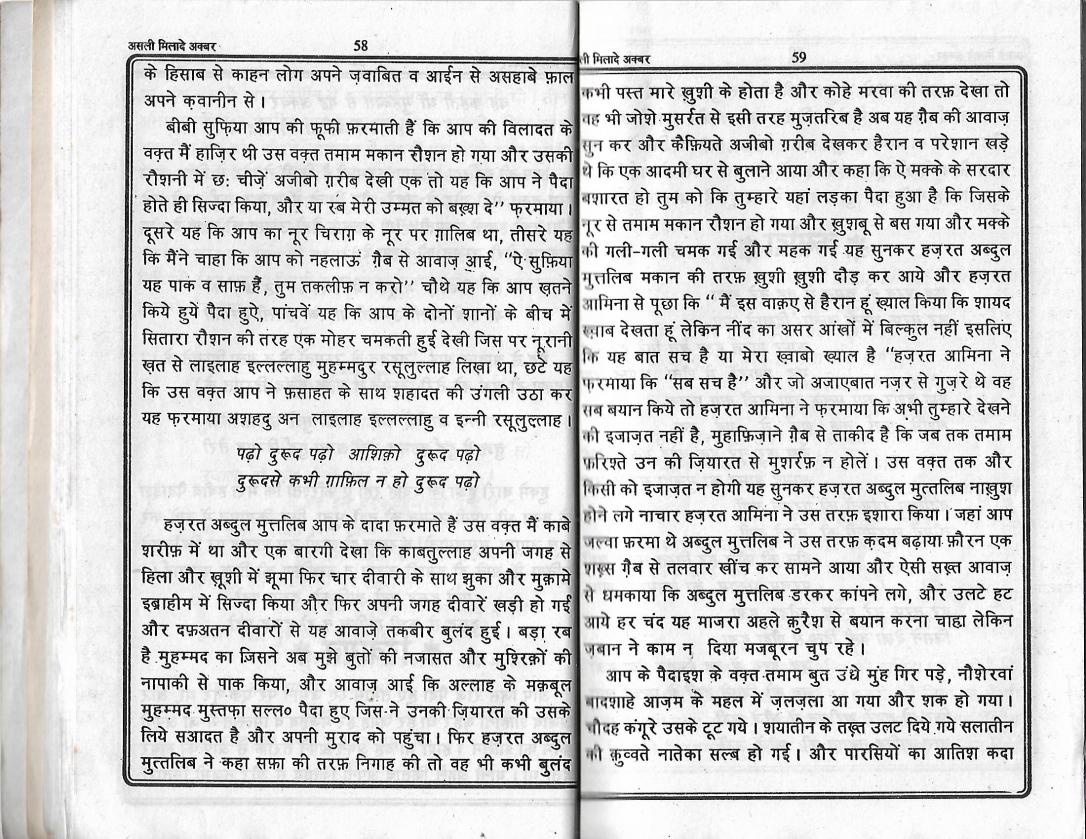 असली मिलादे अक्बर 58
के हिसाब से काहन लोग अपने ज़वाबित व आईन से असहाबे फ़ाल
अपने क़वानीन से ।
बीबी सुफ़िया आप की फूफी फ़रमाती हैं कि आप की विलादत के
वक्त मैं हाज़िर थी उस वक्त तमाम मकान रौशन हो गया और उसकी
रौशनी में छः चीज़ें अजीबो ग़रीब देखी एक तो यह कि आप ने पैदा
होते ही सिज्दा किया, और या रब मेरी उम्मत को बख़्श दे” फ़रमाया ।
दूसरे यह कि आप का नूर चिराग़ के नूर पर ग़ालिब था, तीसरे यह
कि मैंने चाहा कि आप को नहलाऊं ग़ैब से आवाज़ आई, “ऐ सुफ़िया
यह पाक व साफ़ हैं, तुम तकलीफ़ न करो” चौथे यह कि आप ख़तने
किये हुयें पैदा हुऐ, पांचवें यह कि आप के दोनों शानों के बीच में
सितारा रौशन की तरह एक मोहर चमकती हुई देखी जिस पर नूरानी
ख़त से लाइलाह इल्लल्लाहु मुहम्मदुर रसूलुल्लाह लिखा था, छटे यह
कि उस वक्त आप ने फ़साहत के साथ शहादत की उंगली उठा कर
यह फ़रमाया अशहदु अन लाइलाह इल्लल्लाहु व इन्नी रसूलुल्लाह ।
पढ़ो दुरूद पढ़ो आशिक़ो दुरूद पढ़ो
दुरूदसे कभी ग़ाफ़िल न हो दुरूद पढ़ो
हज़रत अब्दुल मुत्तलिब आप के दादा फ़रमाते हैं उस वक्त मैं काबे
शरीफ़ में था और एक बारगी देखा कि काबतुल्लाह अपनी जगह से
हिला और खूशी में झूमा फिर चार दीवारी के साथ झुका और मुक़ामे
इब्राहीम में सिज्दा किया और फिर अपनी जगह दीवारें खड़ी हो गईं
और दफ़अतन दीवारों से यह आवाज़े तकबीर बुलंद हुई । बड़ा रब
है मुहम्मद का जिसने अब मुझे बुतों की नजासत और मुश्रिक़ों की
नापाकी से पाक किया, और आवाज़ आई कि अल्लाह के मक़बूल
मुहम्मद मुस्तफ़ा सल्ल० पैदा हुए जिस ने उनकी ज़ियारत की उसके
लिये सआदत है और अपनी मुराद को पहुंचा । फिर हज़रत अब्दुल
मुत्तलिब ने कहा सफ़ा की तरफ़ निगाह की तो वह भी कभी बुलंद
ली मिलादे अक्बर 59
कभी पस्त मारे ख़ुशी के होता है और कोहे मरवा की तरफ़ देखा तो
वह भी जोशे मुसर्रत से इसी तरह मुज़तरिब है अब यह ग़ैब की आवाज़
सुन कर और कैफ़ियते अजीबो ग़रीब देखकर हैरान व परेशान खड़े
थे कि एक आदमी घर से बुलाने आया और कहा कि ऐ मक्के के सरदार
बशारत हो तुम को कि तुम्हारे यहां लड़का पैदा हुआ है कि जिसके
नूर से तमाम मकान रौशन हो गया और खुशबू से बस गया और मक्के
की गली-गली चमक गई और महक गई यह सुनकर हज़रत अब्दुल
मुत्तलिब मकान की तरफ़ ख़ुशी ख़ुशी दौड़ कर आये और हज़रत
आमिना से पूछा कि “ मैं इस वाक़ए से हैरान हूं ख्याल किया कि शायद
ख़्वाब देखता हूं लेकिन नींद का असर आंखों में बिल्कुल नहीं इसलिए
कि यह बात सच है या मेरा ख्वाबो ख्याल है “हज़रत आमिना ने
फ़रमाया कि “सब सच है” और जो अजाएबात नज़र से गुज़रे थे वह
सब बयान किये तो हज़रत आमिना ने फ़रमाया कि अभी तुम्हारे देखने
की इजाज़त नहीं है, मुहाफ़िज़ाने ग़ैब से ताकीद है कि जब तक तमाम
फ़रिश्ते उन की ज़ियारत से मुशर्रफ़ न होलें । उस वक्त तक और
किसी को इजाज़त न होगी यह सुनकर हज़रत अब्दुल मुत्तलिब नाख़ुश
होने लगे नाचार हज़रत आमिना ने उस तरफ़ इशारा किया । जहां आप
जल्वा फ़रमा थे अब्दुल मुत्तलिब ने उस तरफ़ क़दम बढ़ाया फ़ौरन एक
शख़्स ग़ैब से तलवार खींच कर सामने आया और ऐसी सख़्त आवाज़
से धमकाया कि अब्दुल मुत्तलिब डरकर कांपने लगे, और उलटे हट
आये हर चंद यह माजरा अहले क़ुरैश से बयान करना चाहा लेकिन
ज़बान ने काम न दिया मजबूरन चुप रहे ।
आप के पैदाइश के वक्त तमाम बुत उंधे मुंह गिर पड़े, नौशेरवां
बादशाहे आज़म के महल में ज़लज़ला आ गया और शक हो गया ।
चौदह कंगूरे उसके टूट गये । शयातीन के तख़्त उलट दिये गये सलातीन
की क़ुव्वते नातेका सल्ब हो गई । और पारसियों का आतिश कदा